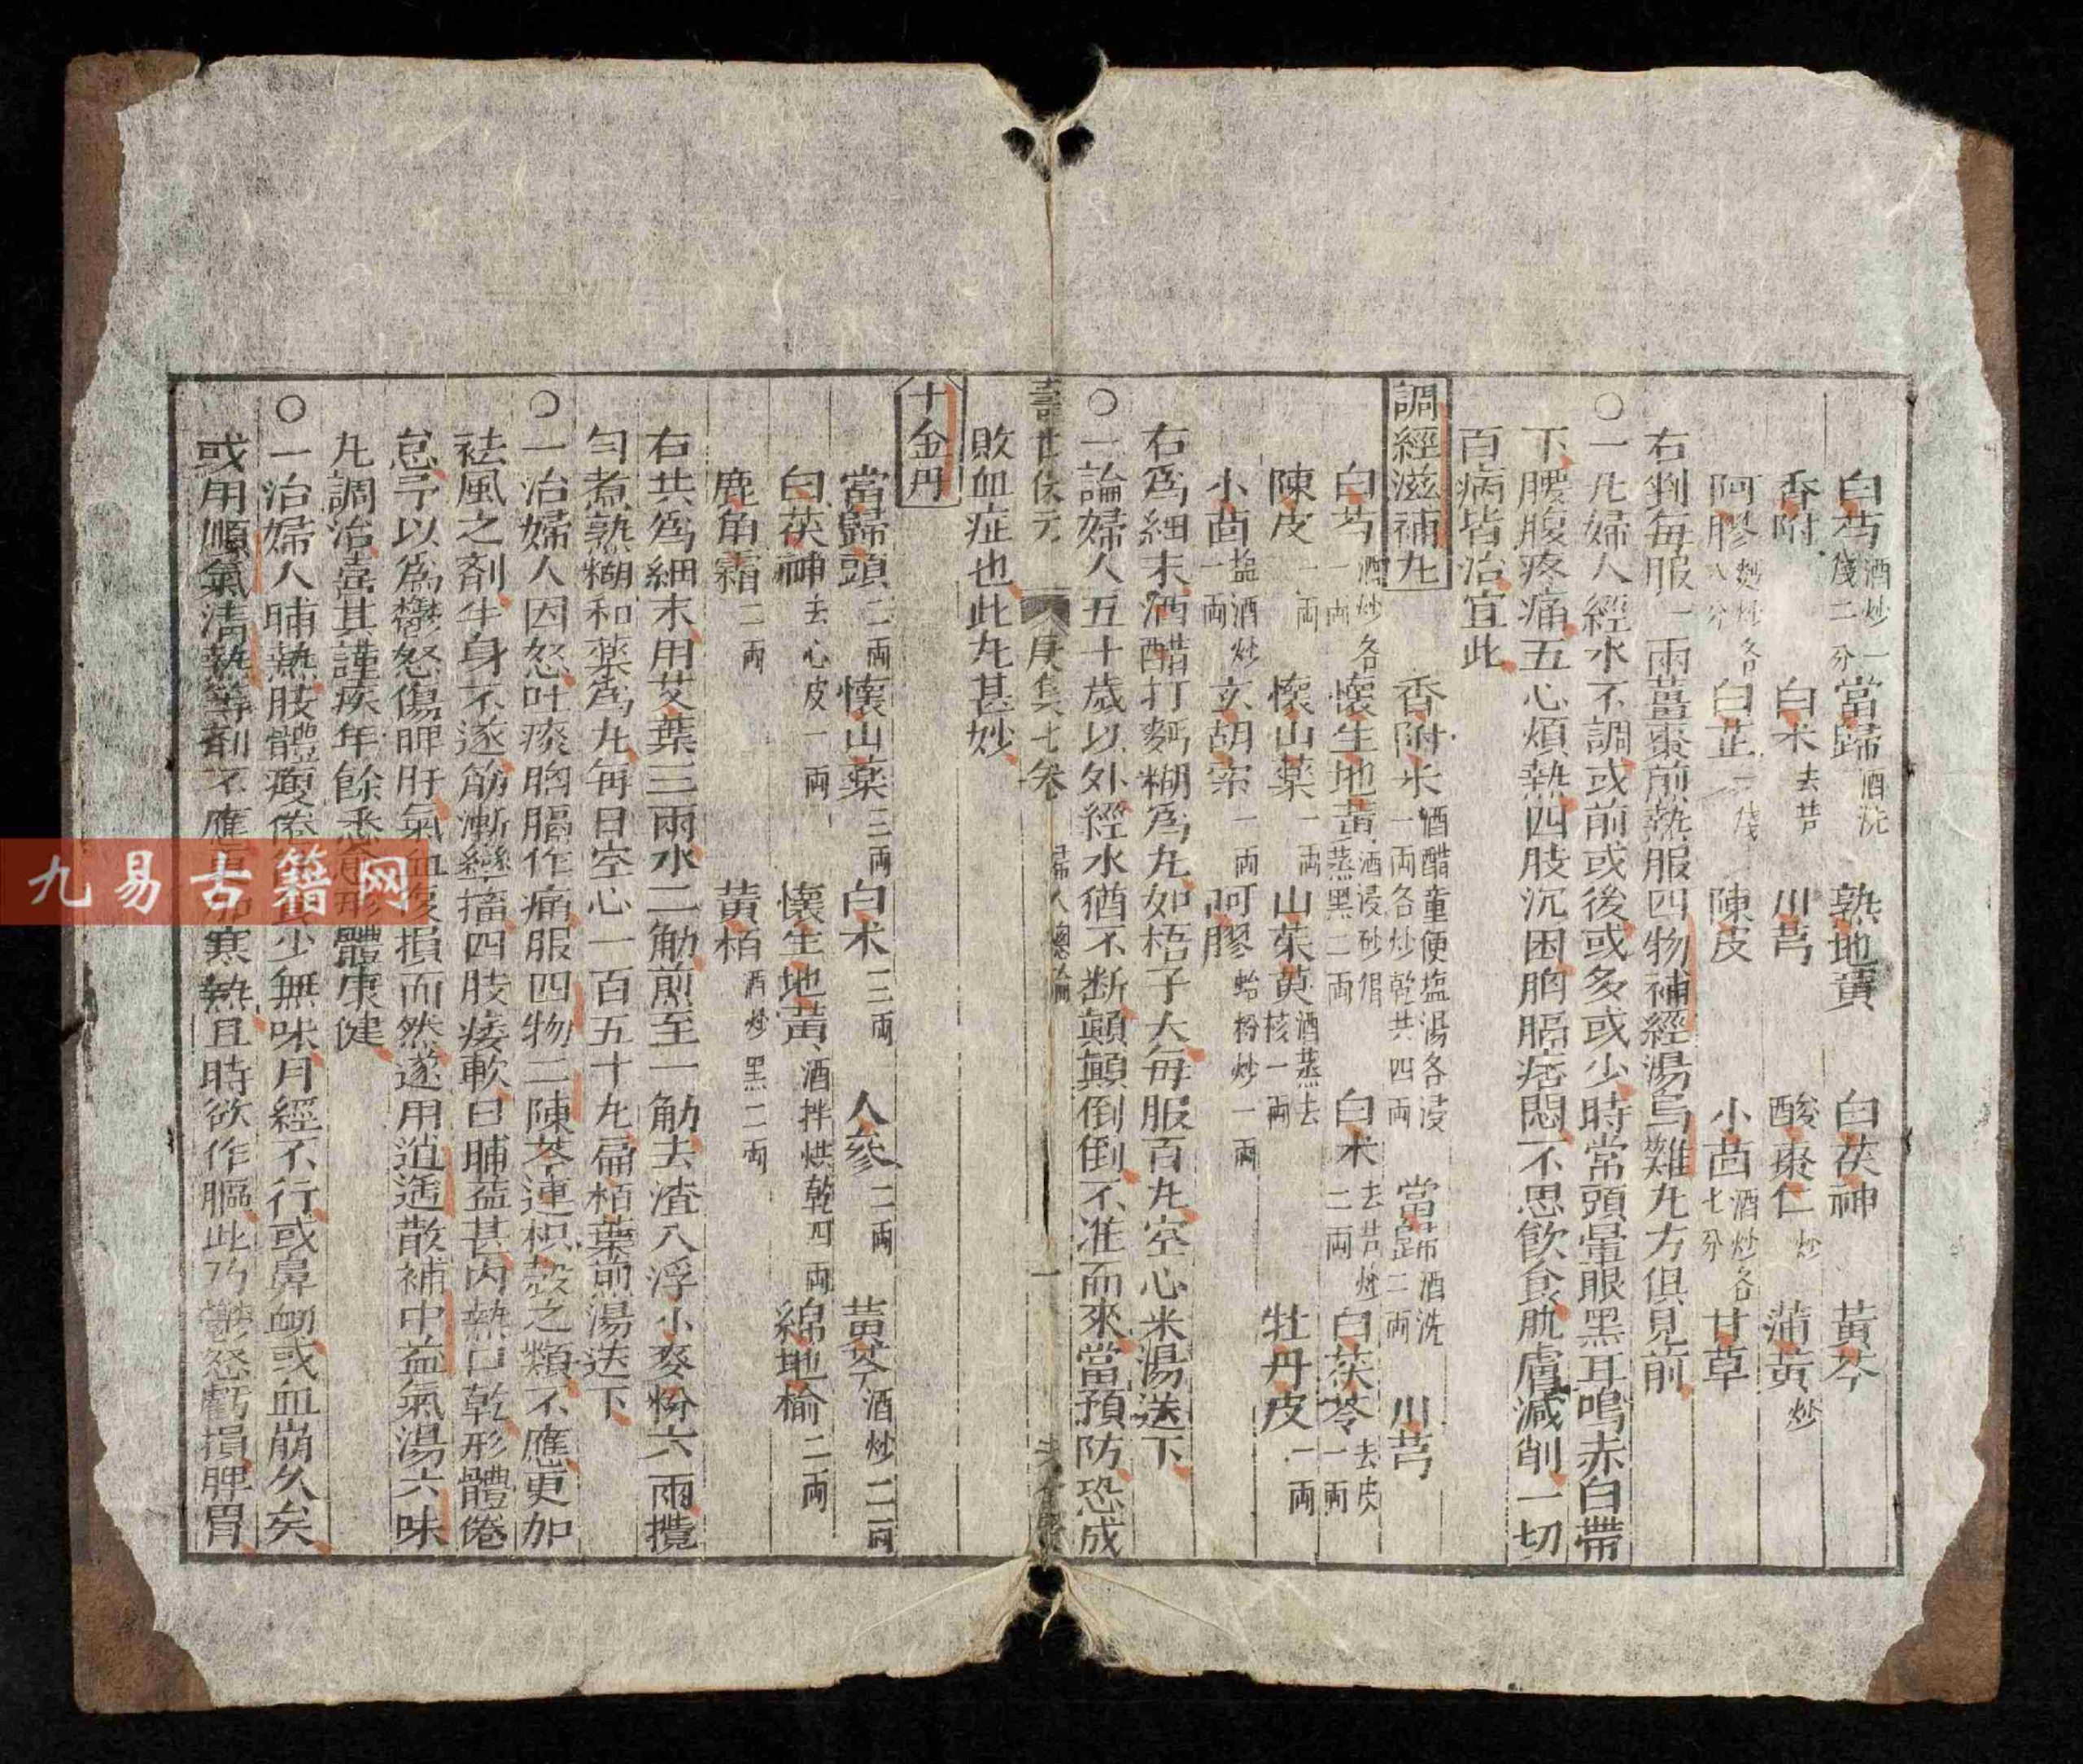 白芍酒炒一錢二分 當歸酒洗 熟地黃 白茯神 黃芩
香附 白朮去苦 川芎 酸棗仁炒 蒲黃炒
阿膠麵炒各八分 白芷一錢 陳皮 小茴酒炒各七分 甘草
右剉每服一兩薑棗煎熱服四物補經湯烏雞丸方俱見前
○一凡婦人經水不調或前或後或多或少時常頭暈眼黑耳鳴赤白帶
下腰腹疼痛五心煩熱四肢沉困胸膈痞悶不思飲食肌膚減削一切
百病皆治宜此
調經滋補丸 香附米酒醋童便塩湯各浸一兩各炒乾共四兩 當歸酒洗二兩 川芎
白芍酒炒各一兩 懷生地黃酒浸砂鍋蒸黑二兩 白朮去苦炒二兩 白茯苓去皮一兩
陳皮一兩 懷山藥一兩 山茱萸酒蒸去核一兩 牡丹皮一兩
小茴塩酒炒一兩 玄胡索一兩 阿膠蛤粉炒一兩
右為細末酒醋打麵糊為丸如梧子大每服百丸空心米湯送下
○一論婦人五十歲以外經水猶不断顛顛倒倒不准而來當預防恐成
壽世保元 庚集七卷 婦人總論 一
敗血症也此丸甚妙
十金丹
當歸頭二兩 懷山藥三兩 白朮三兩 人參二兩 黃芩酒炒二兩
白茯神去心皮一兩 懷生地黃酒拌烘乾四兩 綿地榆二兩
鹿角霜二兩 黃栢酒炒黑二兩
右共為細末用艾葉三兩水二觔煎至一觔去渣入浮小麥粉六兩攪
勻煮熟糊和藥為丸每日空心一百五十丸扁栢葉煎湯送下
○一治婦人因怒吐痰胸膈作痛服四物二陳芩連枳殼之類不應更加
祛風之剤半身不遂筋漸攣搐四肢痿軟日晡益甚內熱口乾形體倦
怠予以為鬱怒傷脾肝氣血復損而然遂用逍遙散補中益氣湯六味
丸調治喜其謹疾年餘悉愈形體康健
○一治婦人晡熱肢體瘦倦食少無味月經不行或鼻衂或血崩久矣
或用順氣清熱等剤不應更加寒熱且時欲作嘔此乃鬱怒虧損脾胃
九易古籍网